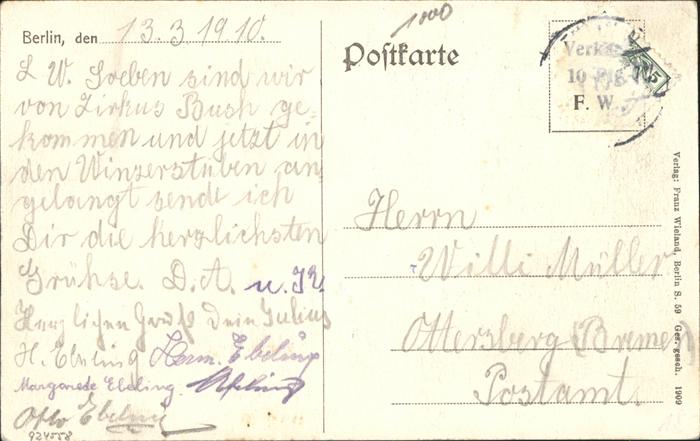 Berlin, den 13.3.1910.
L W. Soeben sind wir
von Zirkus Bush ge-
kommen und jetzt in
den Winzerstuben an
gelangt sende ich
Dir die herzlichsten
Grühse. D. A. u.
Herzlichen Gruß Dein Julius
H. Ebeling Herm. Ebeling
Margarede Ebeling.
Otto Ebeling
924558
1000
Postkarte
Verk
10 Pfg
F. W.
Herrn
Willi Müller
Ottersberg (Bremen
Postamt.
Verlag: Franz Wieland, Berlin S. 59 Ges. gesch. 1909